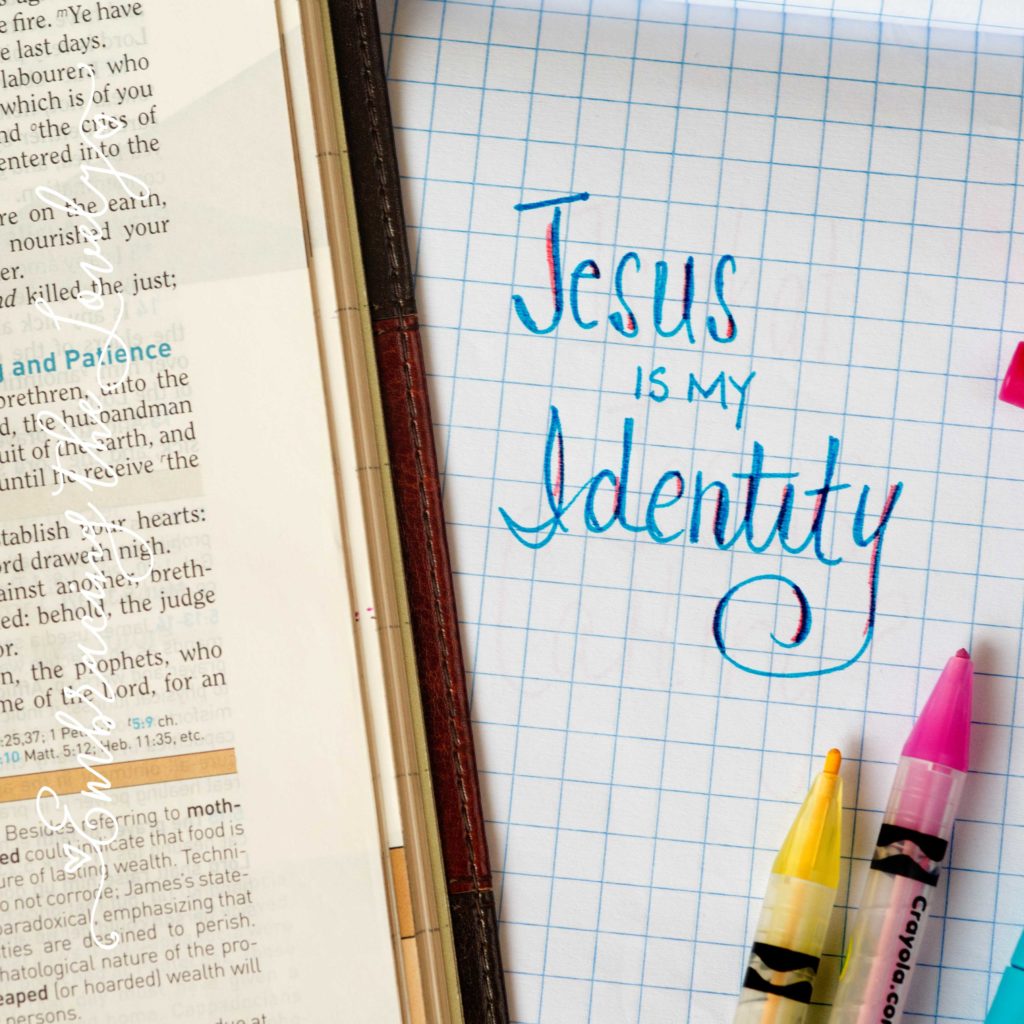 e fire. ᵐYe have
e last days.
labourers, who
which is of you
nd ᵒthe cries of
entered into the
re on the earth,
nourished your
er.
nd killed the just;
g and Patience
brethren, unto the
d, the husbandman
uit of the earth, and
until he receive ʳthe
stablish your hearts:
ord draweth nigh.
ainst another, breth-
ed: behold, the judge
or.
n, the prophets, who
me of the Lord, for an
:25,37; 1 Pet. ᵗ5:9 ch.
:10 Matt. 5:12; Heb. 11:35, etc.
Besides referring to moth-
ed could indicate that food is
ure of lasting wealth. Techni-
o not corrode; James's state-
paradoxical, emphasizing that
ties are destined to perish.
hatological nature of the pro-
eaped (or hoarded) wealth will
persons.
due at
Embracing the Lovely
Jesus
IS MY
Identity
Crayola.com